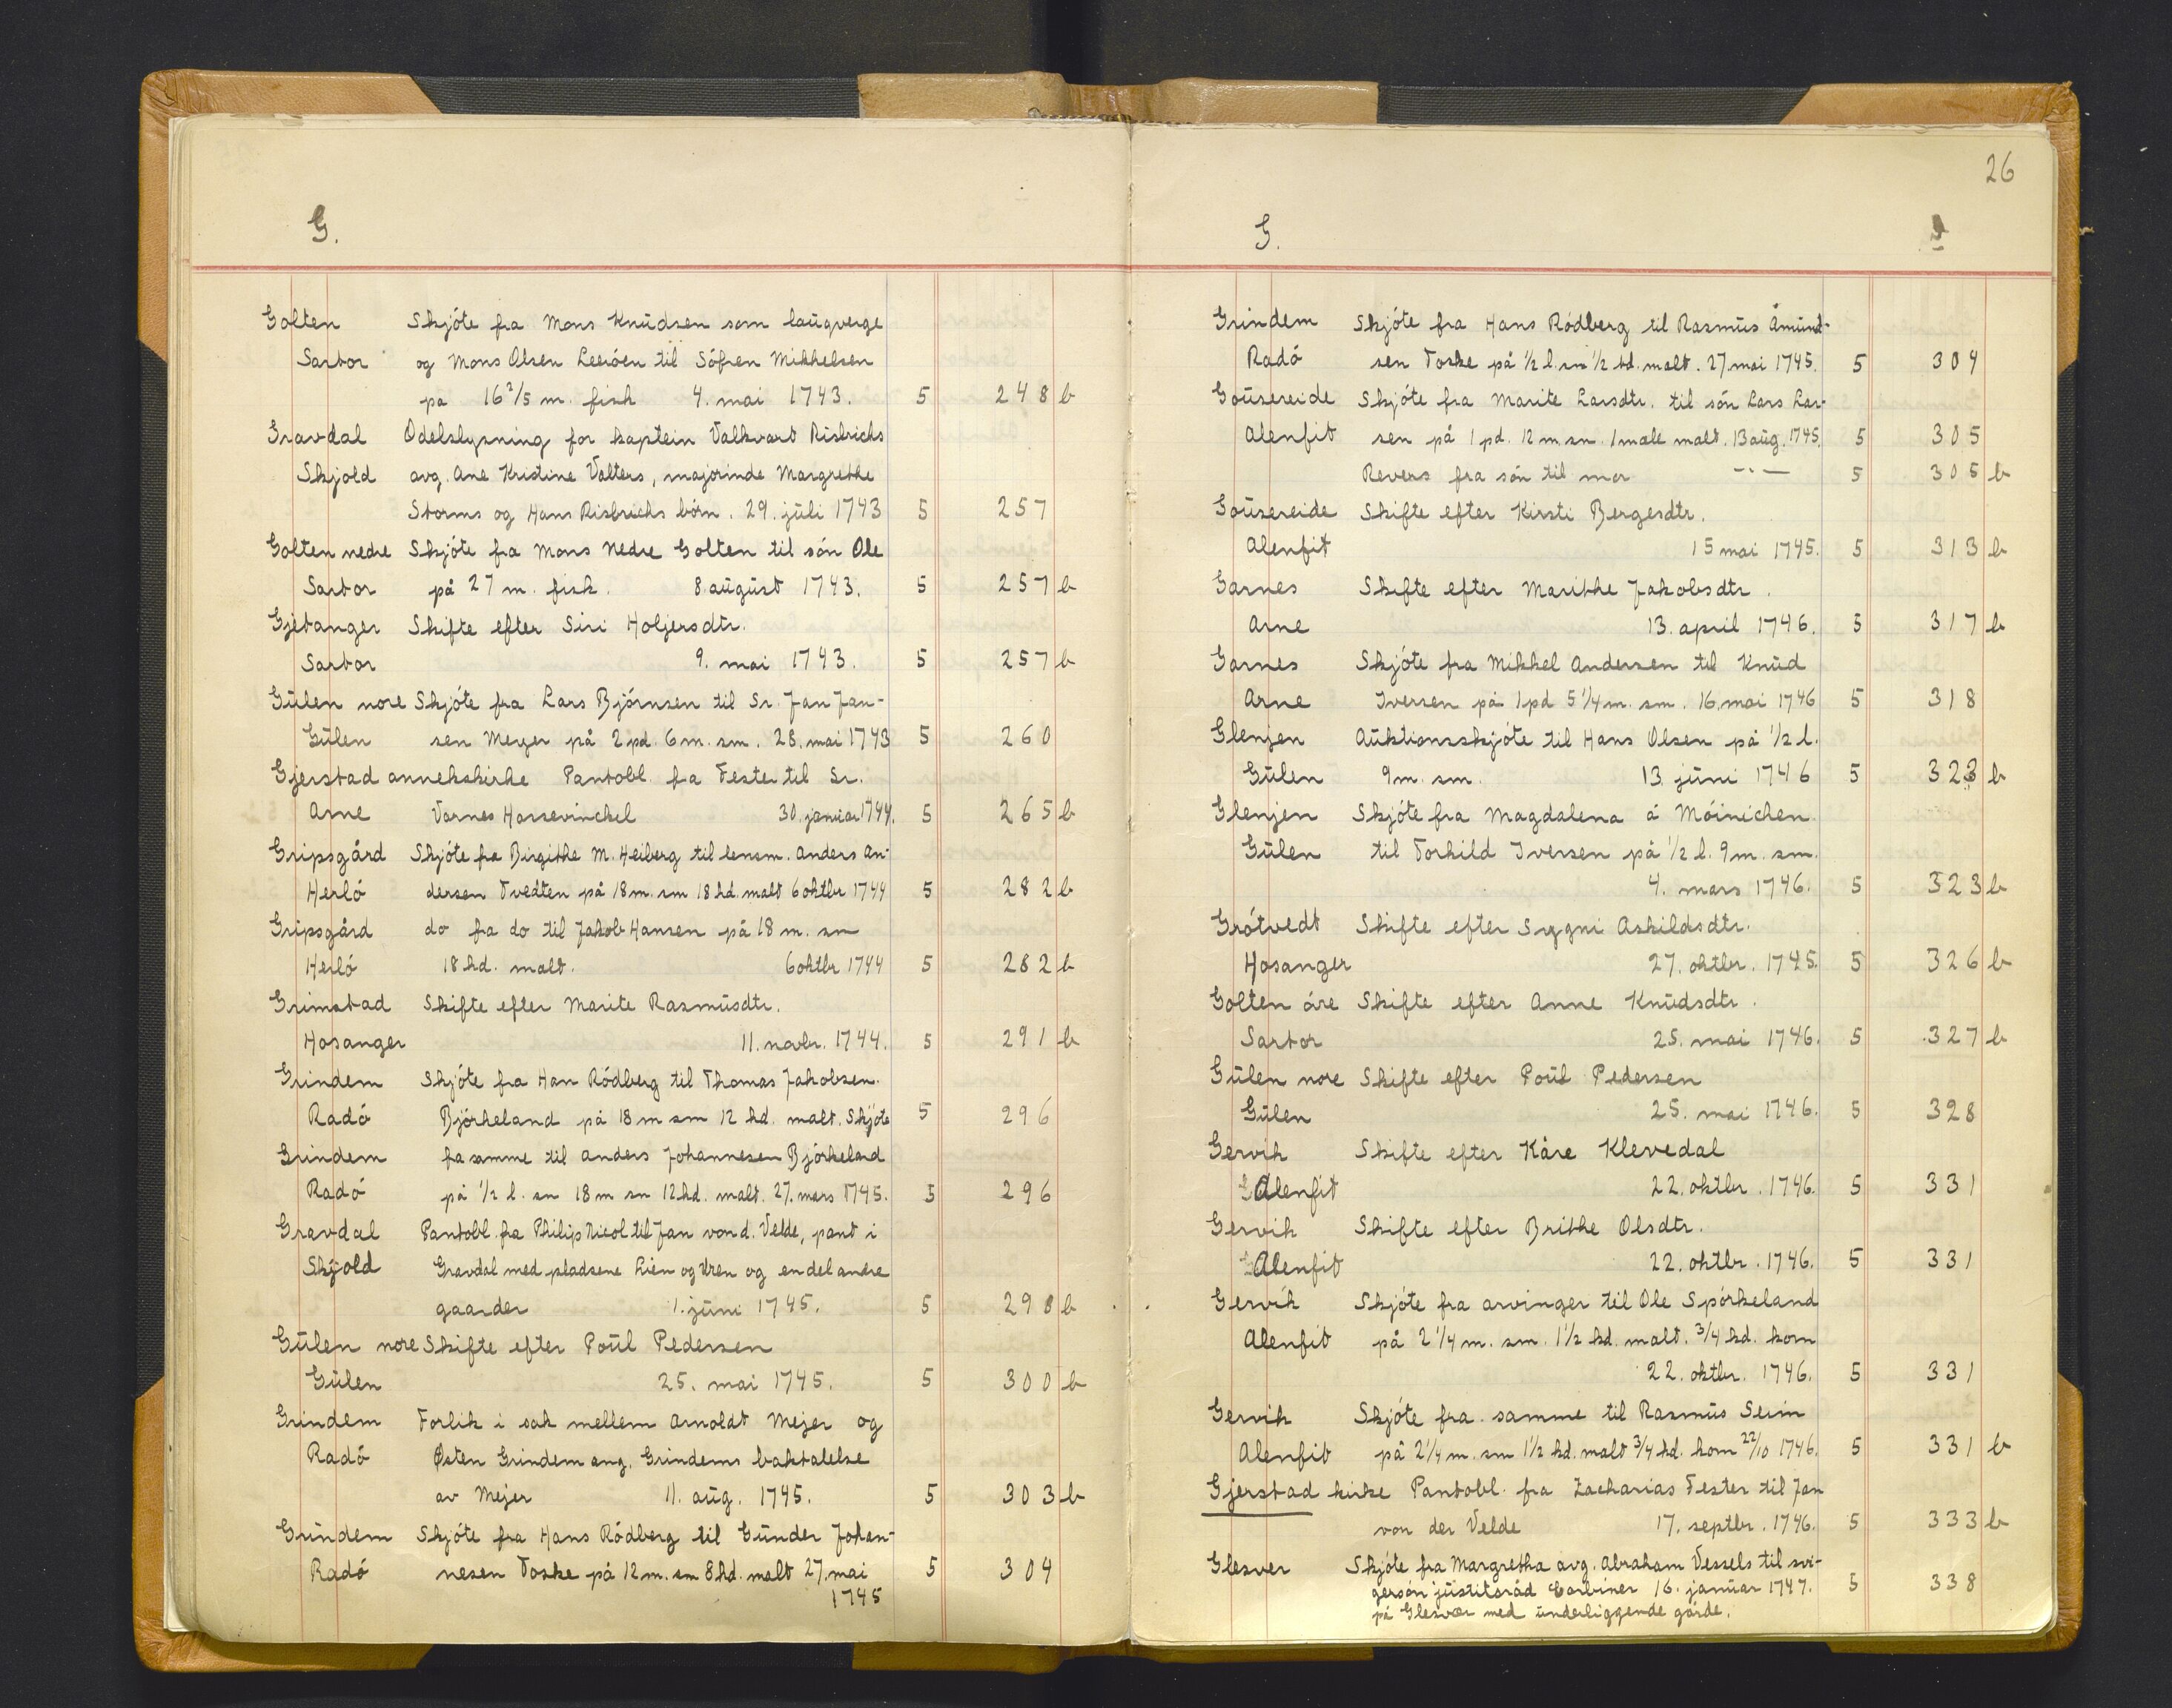 G.
Golten Skjóte fra Mons Knudsen som laugverge
Sartor og Mons Olsen Leeróen til Sófren Mikkelsen
pa 16 2/5 m. fisk 4. mai 1743. 5 248 b
Gravdal Odelslysning for kaptein Valkvart Risbrichs
Skjold avg. Ane Kristine Valters, majorinde Margrethe
Storms og Hans Risbrichs bórn. 29. juli 1743 5 257
Golten nedre Skjóte fra Mons Nedre Golten til són Ole
Sartor på 27 m. fisk. 8. august 1743. 5 257 b
Gjetanger Skifte efter Siri Holjersdtr.
Sartor 9. mai 1743. 5 257 b
Gulen nore Skjóte fra Lars Bjórnsen til Sr. Jan Jan-
Gulen sen Meyer på 2 pd. 6 m. sm. 28. mai 1743 5 260
Gjerstad annekskirke Pantobl. fra Fester til Sr.
Arne Varnes Hassevinckel 30. januar 1744. 5 265 b
Gripsgård Skjóte fra Birgithe M. Heiberg til lensm. Anders An-
Herló dersen Tvedten på 18 m. sm 18 hd. malt 6 oktbr 1744 5 282 b
Gripsgård do fra do til Jakob Hansen på 18 m. sm
Herló 18 hd. malt. 6 oktbr 1744 5 282 b
Grimstad Skifte efter Marite Rasmusdtr.
Hosanger 11. novbr. 1744. 5 291 b
Grindem Skjóte fra Han Ródberg til Thomas Jakobsen.
Radó Bjórkeland på 18 m sm 12 hd. malt. Skjóte 5 296
Grindem fra samme til Anders Johannesen Bjórkeland
Radó på 1/2 l. sn 18 m sn 12 hd. malt. 27. mars 1745. 5 296
Gravdal Pantobl. fra Philip Nicol til Jan von d. Velde, pant i
Skjold Gravdal med pladsene Lien og Uren og en del andre
gaarder 1. juni 1745. 5 298 b
Gulen nore Skifte efter Poul Pedersen
Gulen 25. mai 1745. 5 300 b
Grindem Forlik i sak mellem Arnoldt Mejer og
Radó Østen Grindem ang. Grindems baktalelse
av Mejer 11. aug. 1745. 5 303 b
Grindem Skjóte fra Hans Ródberg til Gunder Johan-
Radó nesen Toske på 12 m. sm 8 hd. malt 27. mai 5 304
1745
26
G.
Grindem Skjóte fra Hans Ródberg til Rasmus Åmund-
Radó sen Toske på 1/2 l. sn 1/2 td. malt. 27. mai 1745. 5 304
Gousereide Skjóte fra Marite Larsdtr. til són Lars Lar-
Alenfit sen på 1 pd. 12 m. sn. 1 mæle malt. 13 aug. 1745. 5 305
Revers fra són til mor — " — 5 305 b
Gousereide Skifte efter Kirsti Bergesdtr.
Alenfit 15 mai 1745. 5 313 b
Garnes Skifte efter Marithe Jakobsdtr.
Arne 13. april 1746. 5 317 b
Garnes Skjóte fra Mikkel Andersen til Knud
Arne Iversen på 1 pd 5 1/4 m. sm. 16. mai 1746 5 318
Glenjen Auktionsskjóte til Hans Olsen på 1/2 l.
Gulen 9 m. sm. 13. juni 1746 5 323 b
Glenjen Skjóte fra Magdalena á Móinichen
Gulen til Torkild Iversen på 1/2 l. 9 m. sm.
4. mars 1746. 5 323 b
Grótvedt Skifte efter Sygni Askildsdtr.
Hosanger 27. oktbr. 1745. 5 326 b
Golten óre Skifte efter Anne Knudsdtr.
Sartor 25. mai 1746. 5 327 b
Gulen nore Skifte efter Poul Pedersen
Gulen 25. mai 1746. 5 328
Gervik Skifte efter Kåre Klevedal
Alenfit 22. oktbr. 1746. 5 331
Gervik Skifte efter Brithe Olsdtr.
Alenfit 22. oktbr. 1746. 5 331
Gervik Skjóte fra arvinger til Ole Spórkeland
Alenfit på 2 1/4 m. sm. 1 1/2 hd. malt. 3/4 hd. korn
22. oktbr. 1746. 5 331
Gervik Skjóte fra samme til Rasmus Seim
Alenfit på 2 1/4 m. sm 1 1/2 hd. malt 3/4 hd. korn 22/10 1746. 5 331 b
Gjerstad kirke Pantobl. fra Zacharias Fester til Jan
von der Velde 17. septbr. 1746. 5 333 b
Glesver Skjóte fra Margretha avg. Abraham Vessels til svi-
gersón justitsråd Carbiner 16. januar 1747. 5 338
på Glesvær med underliggende gårde.